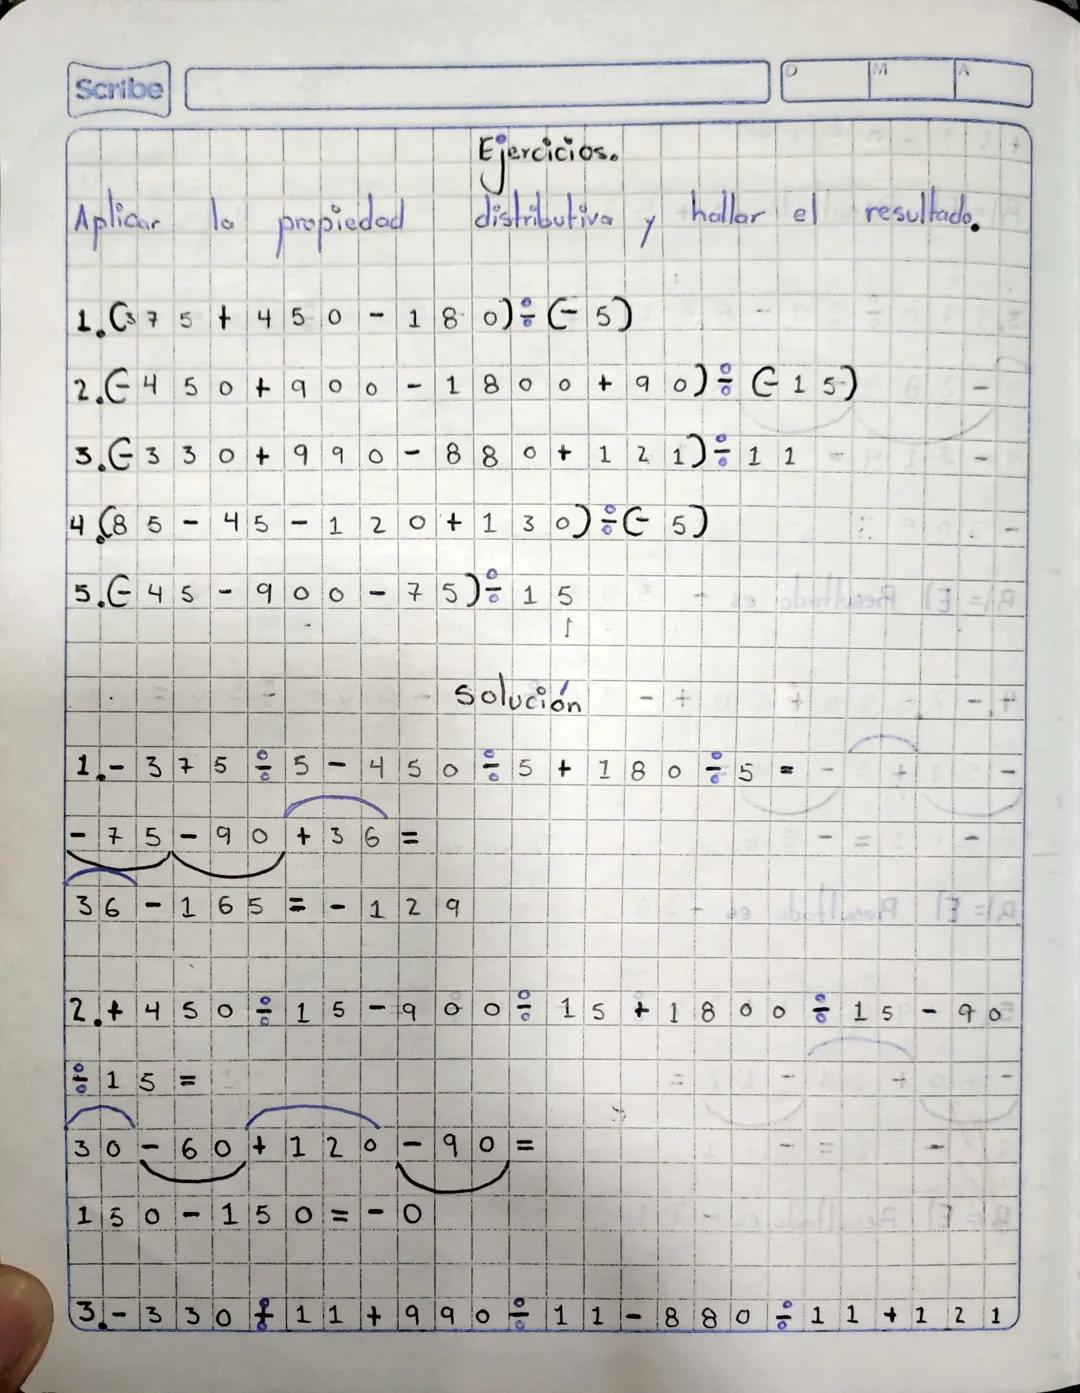 Scribe
D M A
Ejercicios.
Aplicar la propiedad distributiva y hallar el resultado.
1.(375+450-180)÷(-5)
2.(-450+900-1800+90)÷(-15)
3.(-330+990-880+121)÷11
4.(85-45-120+130)÷(-5)
5.(-45-900-75)÷15
solución
1.-375÷5-450÷5+180÷5=
-75-90+36=
36-165=-129
2.+450÷15-900÷15+1800÷15-90
÷15=
30-60+120-90=
150-150=-0
3.-330÷11+990÷11-880÷11+121